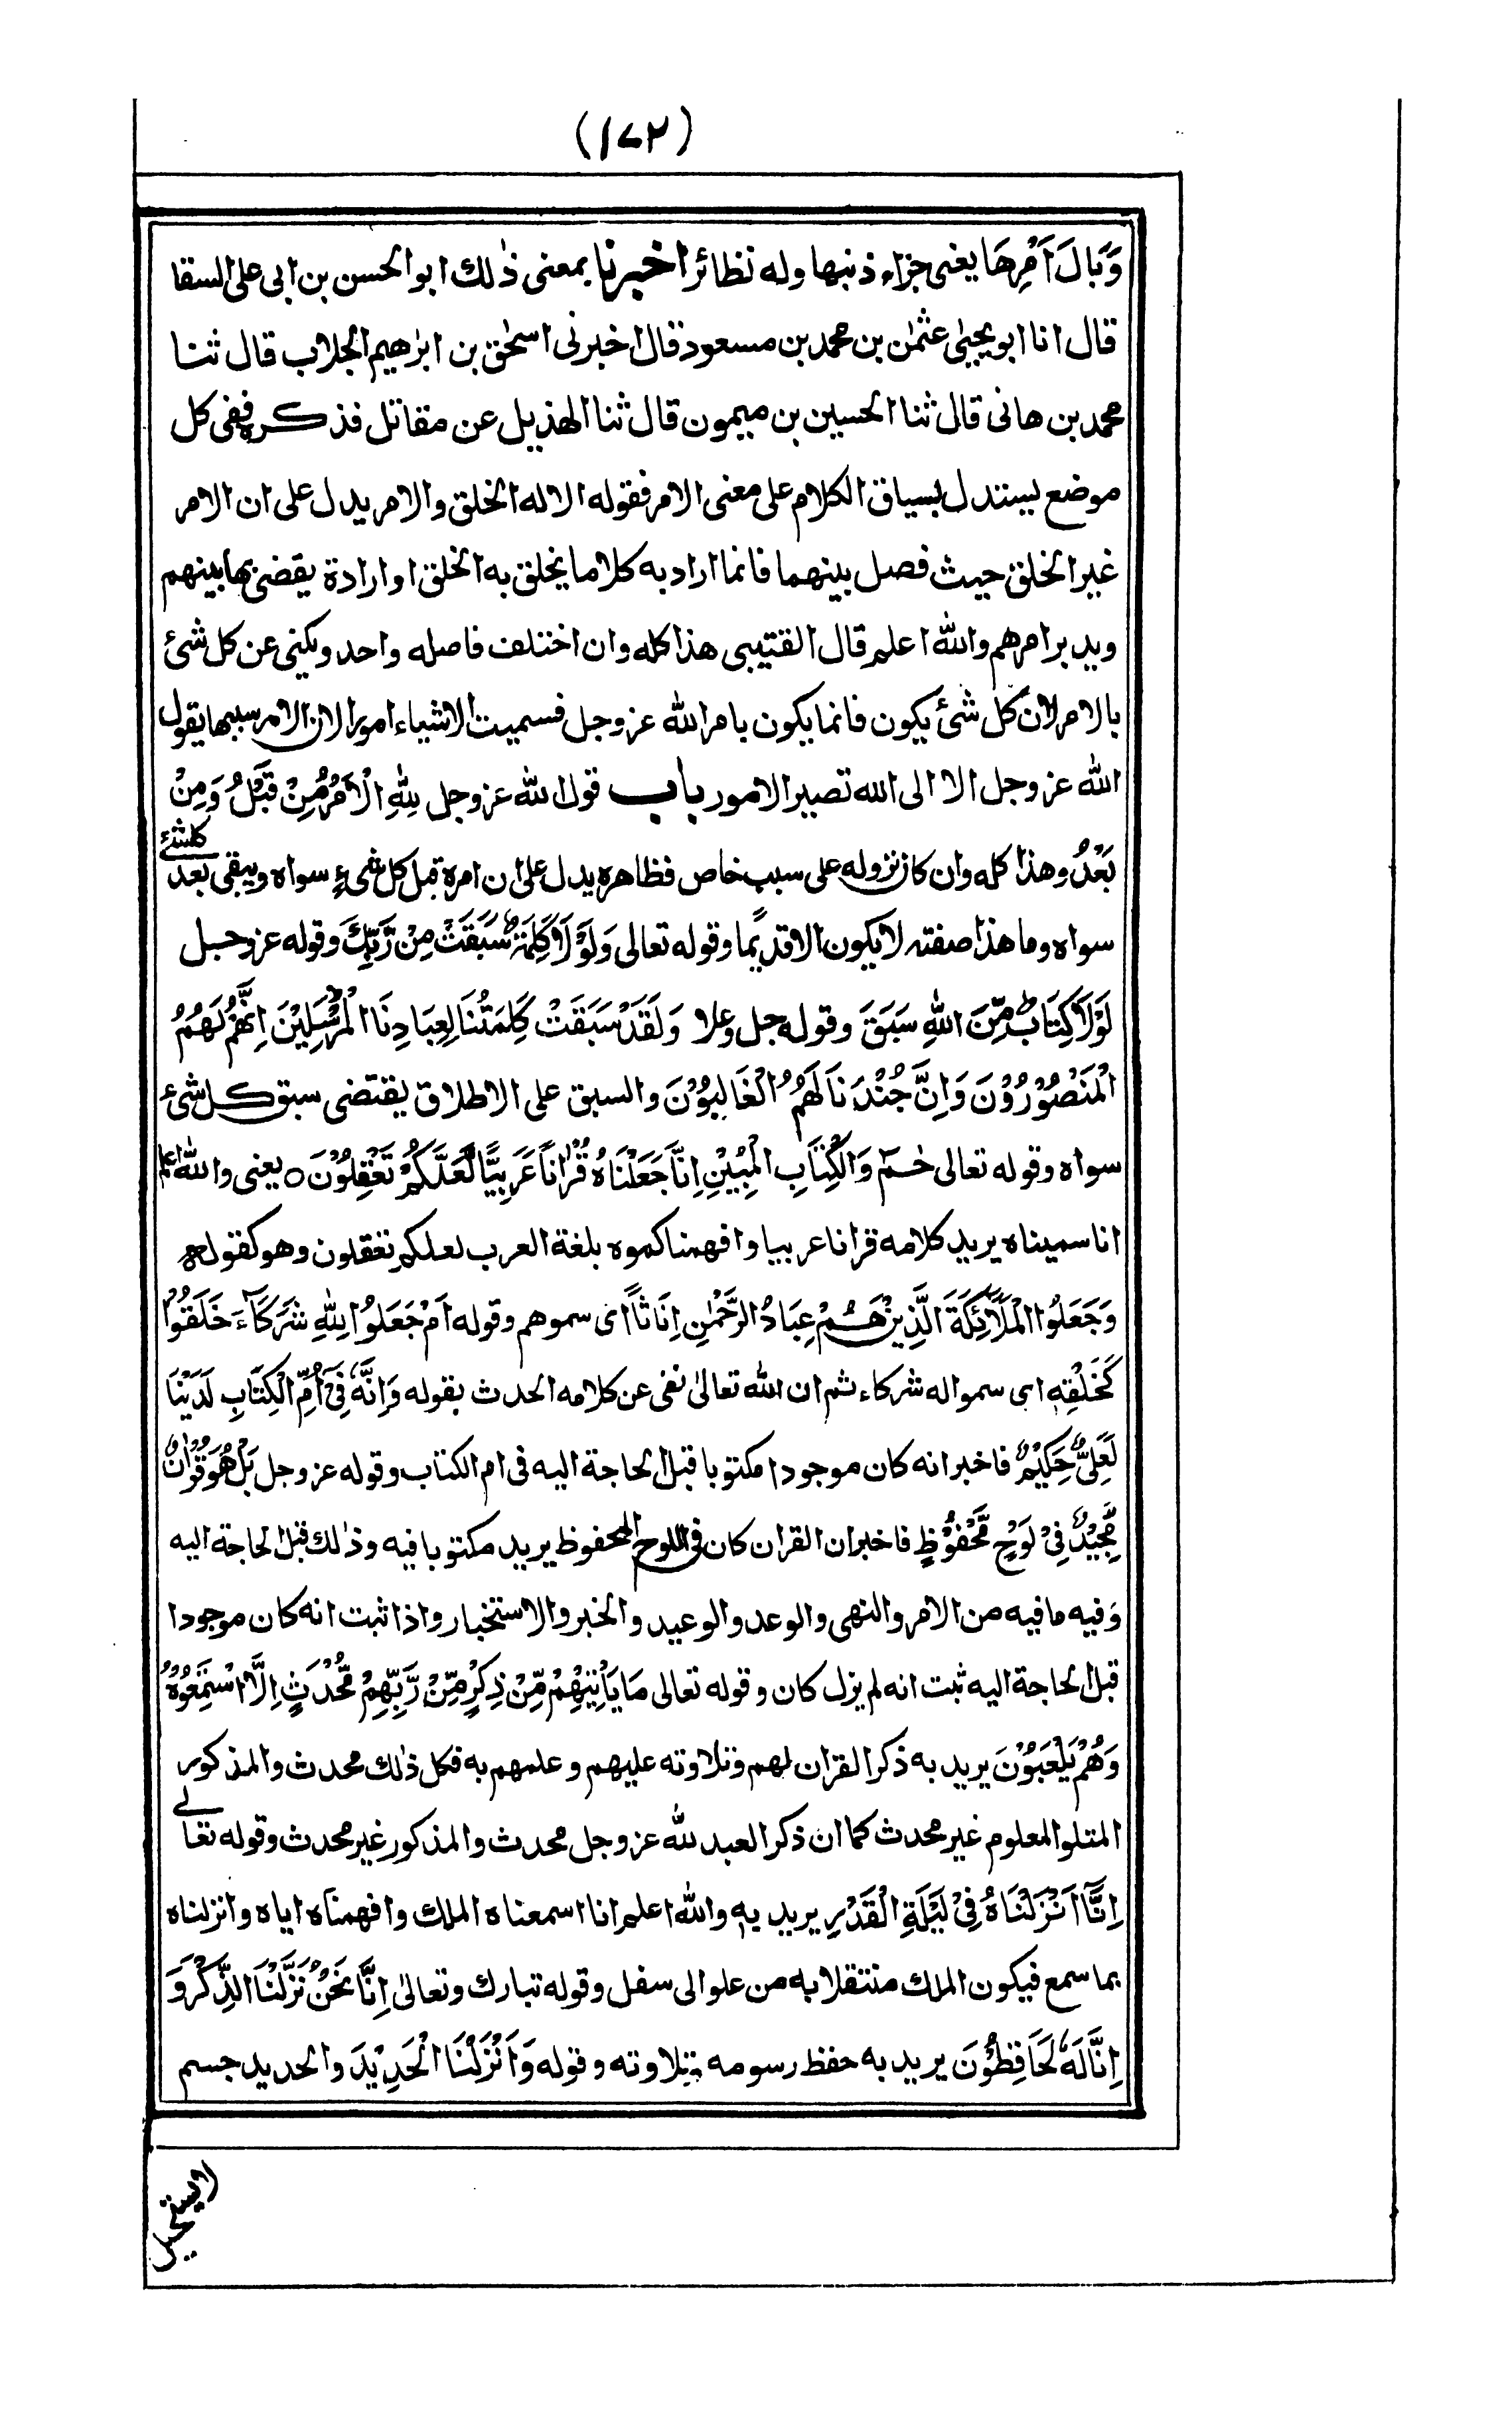 (١٧٢)
وَبَالَ اَمْرِهَا يعنى جزاء ذنبها وله نظائر اخبرنا بمعنى ذٰلك ابو الحسن بن ابى على السقا
قال انا ابو يحيٰى عثمٰن بن محمد بن مسعود قال اخبرنى اسحٰق بن ابرٰهيم الجلاب قال ثنا
محمد بن هانى قال ثنا الحسين بن ميمون قال ثنا الهذيل عن مقاتل فذكره ففى كل
موضع يستدل بسياق الكلام على معنى الامر فقوله الا له الخلق والامر يدل على ان الامر
غير الخلق حيث فصل بينهما فانما اراد به كلاما يخلق به الخلق او ارادة يقضى بها بينهم
ويدبر امرهم والله اعلم قال القتيبى هذا كله وان اختلف فاصله واحد ويكنى عن كل شئ
بالامر لان كل شئ يكون فانما يكون بامر الله عز وجل فسميت الاشياء امورا لان الامر سببها يقول
الله عز وجل الا الى الله تصير الامور باب قول الله عز وجل لِلّٰهِ الْاَمْرُ مِنْ قَبْلُ وَمِنْ
بَعْدُ وهذا كله وان كان نزوله على سبب خاص فظاهره يدل على ان امره قبل كل شىء سواه ويبقى بعد كلشئ
سواه وما هذا صفته لا يكون الا قديما وقوله تعالى وَلَوْلَا كَلِمَةٌ سَبَقَتْ مِنْ رَّبِّكَ وقوله عز وجل
لَوْلَا كِتَابٌ مِّنَ اللّٰهِ سَبَقَ وقوله جل وعلا وَلَقَدْ سَبَقَتْ كَلِمَتُنَا لِعِبَادِنَا الْمُرْسَلِيْنَ اِنَّهُمْ لَهُمُ
الْمَنْصُوْرُوْنَ وَاِنَّ جُنْدَنَا لَهُمُ الْغَالِبُوْنَ والسبق على الاطلاق يقتضى سبق كل شئ
سواه وقوله تعالى حٰمٓ وَالْكِتَابِ الْمُبِيْنِ اِنَّا جَعَلْنَاهُ قُرْاٰنًا عَرَبِيًّا لَّعَلَّكُمْ تَعْقِلُوْنَ ○ يعنى والله اعلم
انا سميناه يريد كلامه قرانا عربيا وافهمناكموه بلغة العرب لعلكم تعقلون وهو كقوله
وَجَعَلُوا الْمَلَآئِكَةَ الَّذِيْنَ هُمْ عِبَادُ الرَّحْمٰنِ اِنَاثًا اى سموهم وقوله اَمْ جَعَلُوْا لِلّٰهِ شُرَكَآءَ خَلَقُوْا
كَخَلْقِهٖ اى سموا له شركاء ثم ان الله تعالٰى نفى عن كلامه الحدث بقوله وَاِنَّهٗ فِىْٓ اُمِّ الْكِتَابِ لَدَيْنَا
لَعَلِىٌّ حَكِيْمٌ فاخبر انه كان موجودا مكتوبا قبل الحاجة اليه فى ام الكتاب وقوله عز وجل بَلْ هُوَ قُرْاٰنٌ
مَّجِيْدٌ فِىْ لَوْحٍ مَّحْفُوْظٍ فاخبر ان القران كان فى اللوح المحفوظ يريد مكتوبا فيه وذٰلك قبل الحاجة اليه
وفيه ما فيه من الامر والنهى والوعد والوعيد والخبر والاستخبار واذا ثبت انه كان موجودا
قبل الحاجة اليه ثبت انه لم يزل كان وقوله تعالى مَا يَاْتِيْهِمْ مِّنْ ذِكْرٍ مِّنْ رَّبِّهِمْ مُّحْدَثٍ اِلَّا اسْتَمَعُوْهُ
وَهُمْ يَلْعَبُوْنَ يريد به ذكر القران لهم وتلاوته عليهم وعلمهم به فكل ذٰلك محدث والمذكور
المتلو المعلوم غير محدث كما ان ذكر العبد لله عز وجل محدث والمذكور غير محدث وقوله تعالى
اِنَّآ اَنْزَلْنَاهُ فِىْ لَيْلَةِ الْقَدْرِ يريد به والله اعلم انا اسمعناه الملك وافهمناه اياه وانزلناه
بما سمع فيكون الملك منتقلا به من علو الى سفل وقوله تبارك وتعالٰى اِنَّا نَحْنُ نَزَّلْنَا الذِّكْرَ وَ
اِنَّا لَهٗ لَحَافِظُوْنَ يريد به حفظ رسومه وتلاوته وقوله وَاَنْزَلْنَا الْحَدِيْدَ والحديد جسم
لايستحيل